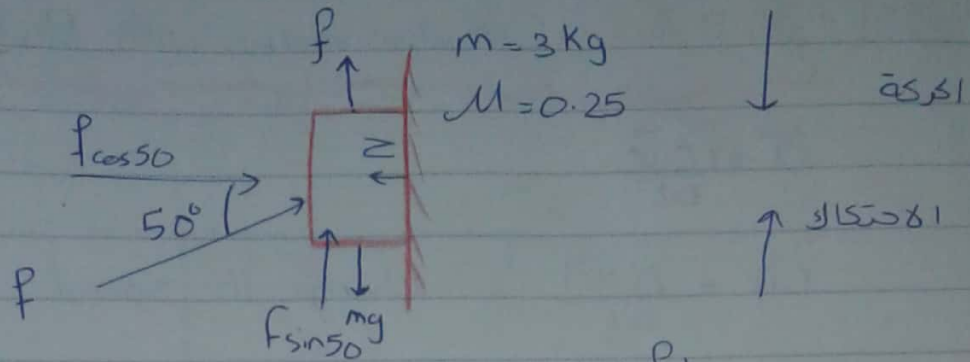 f
m = 3 Kg
M = 0.25
الحركة
f cos 50
N
50°
الاحتكاك
f
mg
F sin 50